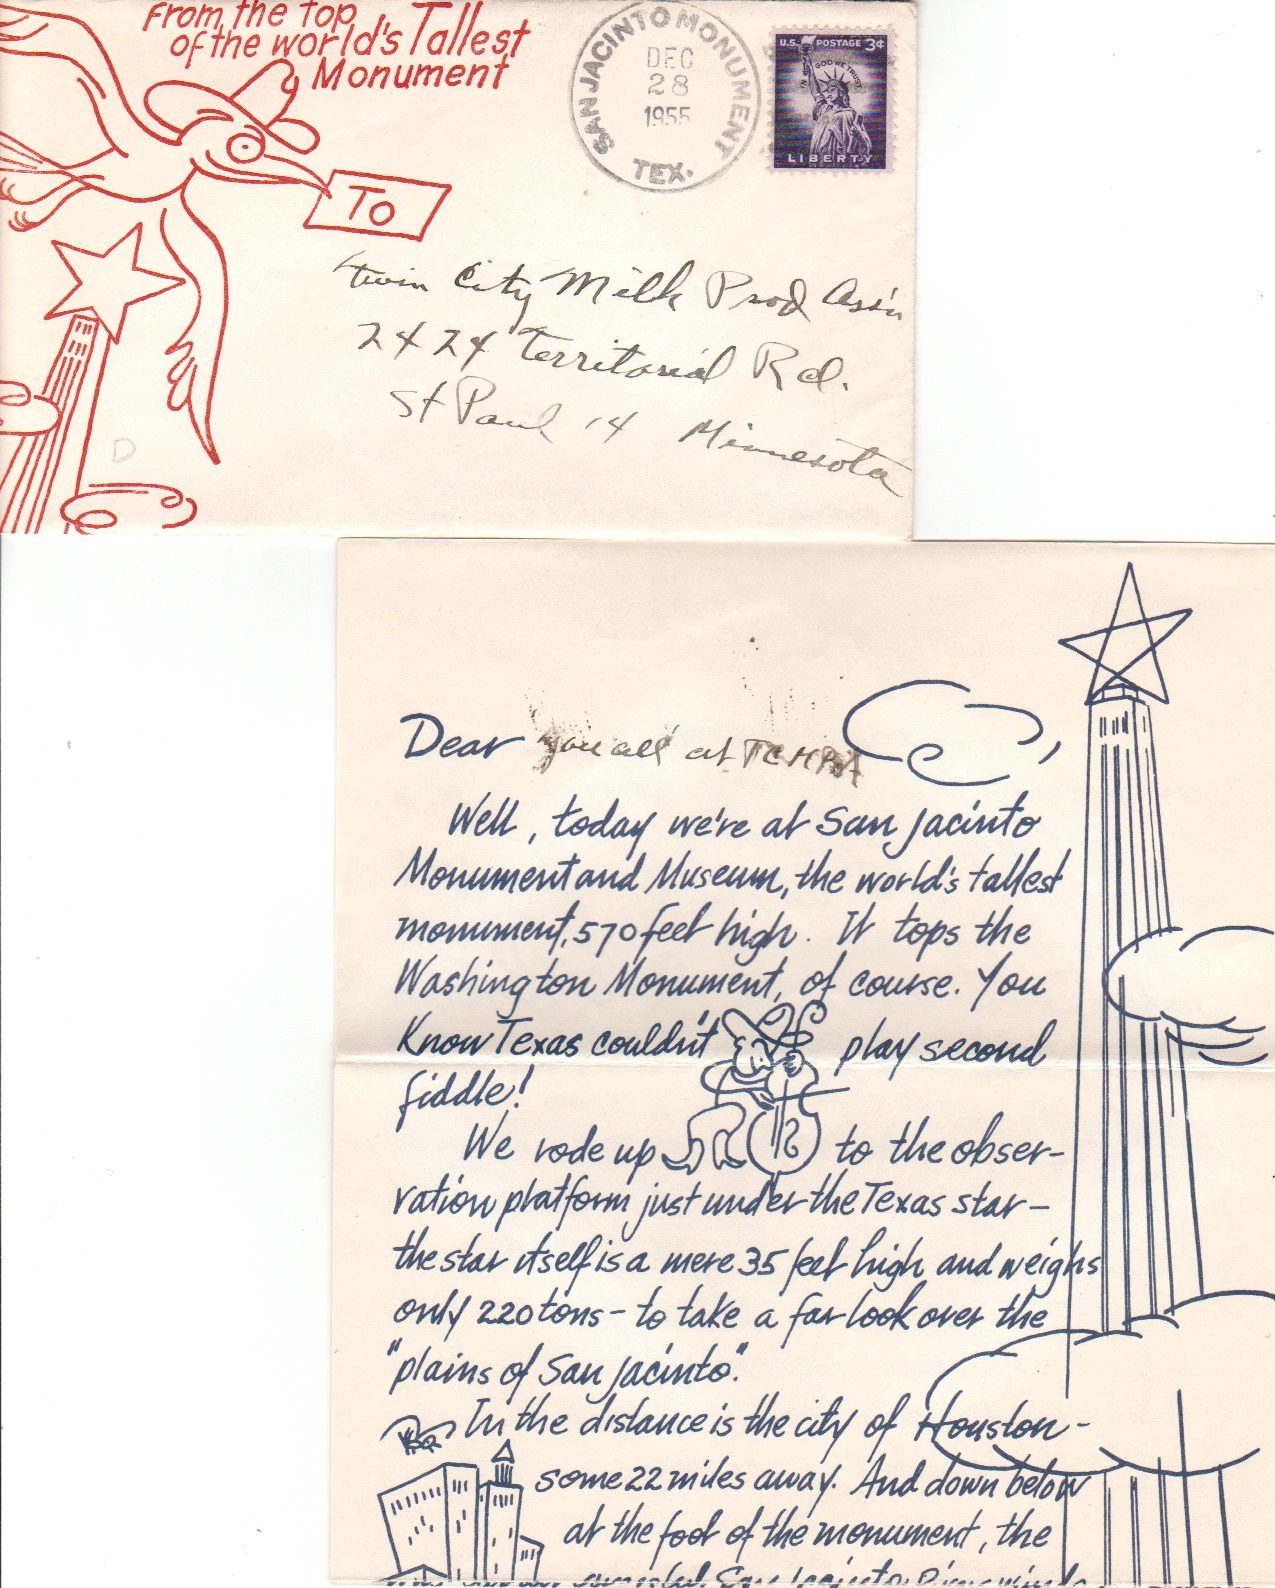 From the top
of the world's Tallest
Monument
SAN JACINTO MONUMENT
DEC
28
1955
TEX.
U.S. POSTAGE 3¢
IN GOD WE TRUST
LIBERTY
To
Twin City Milk Prod Ass'n
2424 Territorial Rd.
St Paul 14 Minnesota
D
Dear you all at TCMPA,
Well, today we're at San Jacinto
Monument and Museum, the world's tallest
monument, 570 feet high. It tops the
Washington Monument, of course. You
Know Texas couldn't play second
fiddle!
We rode up to the obser-
vation platform just under the Texas star-
the star itself is a mere 35 feet high and weighs
only 220 tons - to take a far look over the
"plains of San Jacinto".
In the distance is the city of Houston-
some 22 miles away. And down below
at the foot of the monument, the
San Jacinto River winds